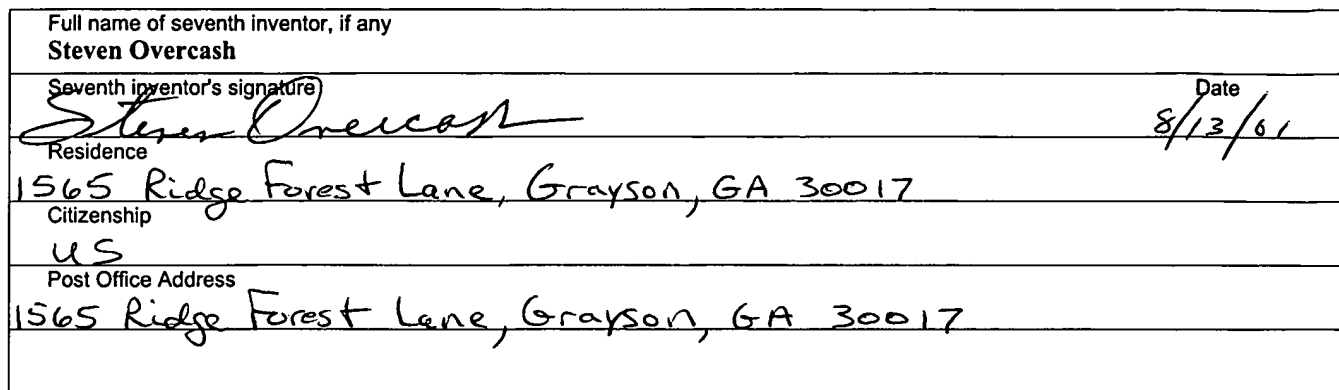 Full name of seventh inventor, if any
Steven Overcash
Seventh inventor's signature
Date
Steven Overcash
8/13/01
Residence
1565 Ridge Forest Lane, Grayson, GA 30017
Citizenship
US
Post Office Address
1565 Ridge Forest Lane, Grayson, GA 30017